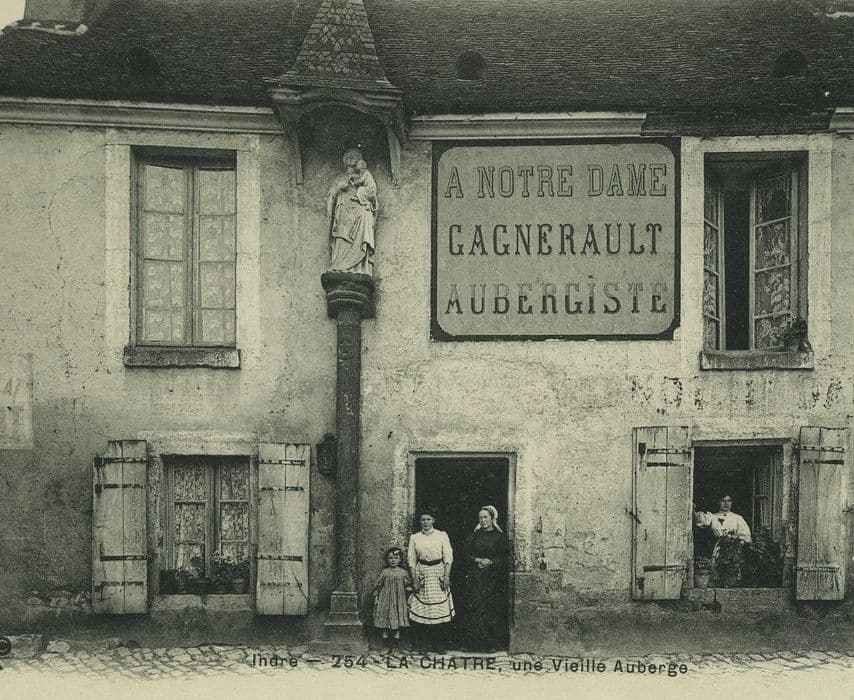 A NOTRE DAME
GAGNERAULT
AUBERGISTE
Indre — 254 - LA CHATRE, une Vieille Auberge